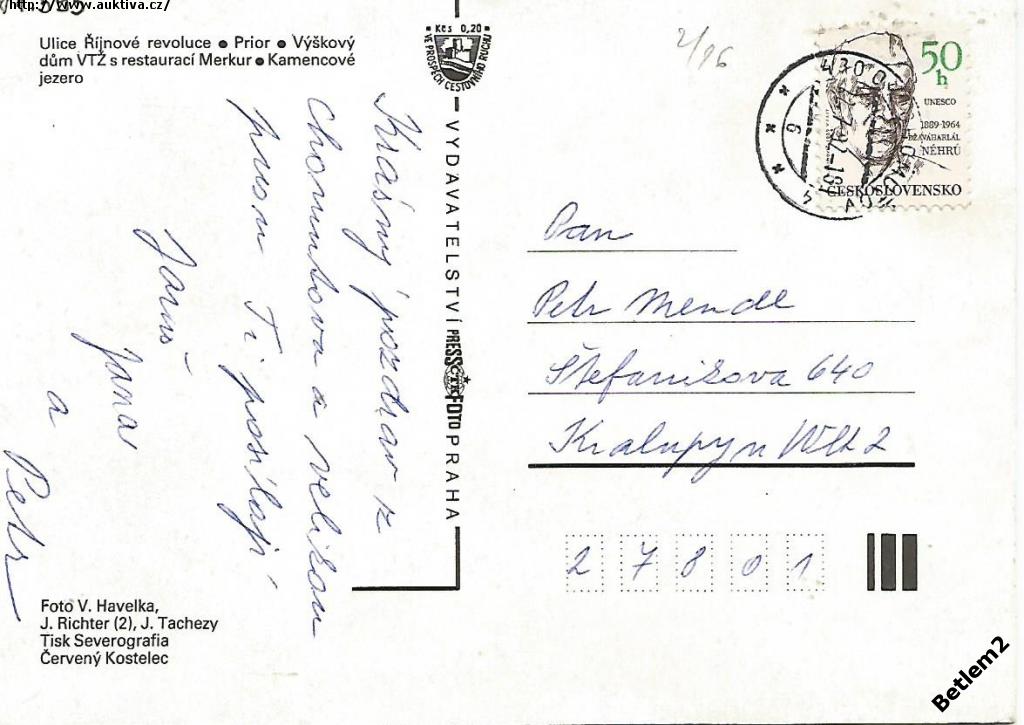 http://www.auktiva.cz/
Ulice Říjnové revoluce ● Prior ● Výškový
dům VTŽ s restaurací Merkur ● Kamencové
jezero
Kčs 0,20
VE PROSPĚCH CESTOVNÍHO RUCHU
2/96
50
h
UNESCO
1889-1964
NÉHRÚ
ČESKOSLOVENSKO
Krásný pozdrav z
Chomutova a velikou
pusu Ti posílají
Jana
a
Petr
VYDAVATELSTVÍ PRESSFOTO PRAHA
ČTK
Pan
Petr Mendl
Štefanikova 640
Kralupy n Vlt 2
27801
Foto V. Havelka,
J. Richter (2), J. Tachezy
Tisk Severografia
Červený Kostelec
Betlem2